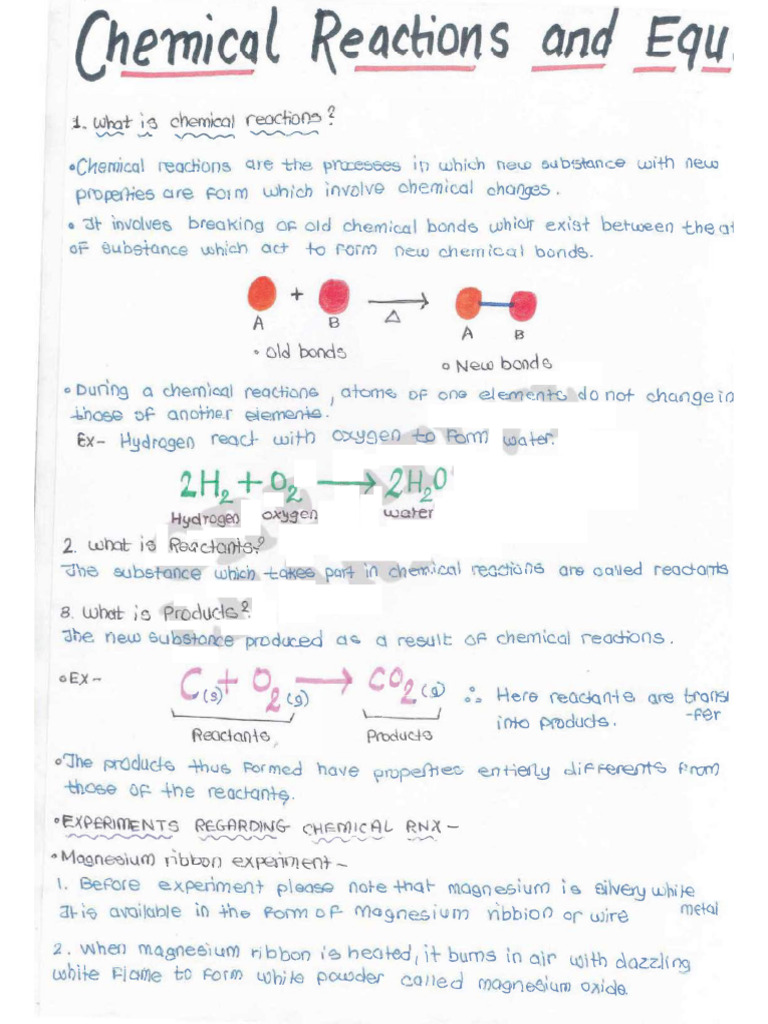 Chemical Reactions and Equ
1. What is chemical reactions?
•Chemical reactions are the processes in which new substance with new
properties are form which involve chemical changes.
• It involves breaking of old chemical bonds which exist between the at
of substance which act to form new chemical bonds.
A + B ⟶ A B
Δ
• Old bonds
∘ New bonds
•During a chemical reactions, atoms of one elements do not change in
those of another elements.
Ex- Hydrogen react with oxygen to form water.
2H₂ + O₂ ⟶ 2H₂O
Hydrogen oxygen water
2. What is Reactants?
The substance which takes part in chemical reactions are called reactants
3. What is Products?
The new substance produced as a result of chemical reactions.
∘EX- C(s) + O₂(g) ⟶ CO₂(g) ∴ Here reactants are transf
-fer
into products.
Reactants, Products
∘The products thus formed have properties entierly differents from
those of the reactants.
∘EXPERIMENTS REGARDING CHEMICAL RNX-
•Magnesium ribbon experiment-
1. Before experiment please note that magnesium is silvery white
metal
It is available in the form of Magnesium ribbion or wire
2. When magnesium ribbon is heated, it burns in air with dazzling
white flame to form white powder called magnesium oxide.